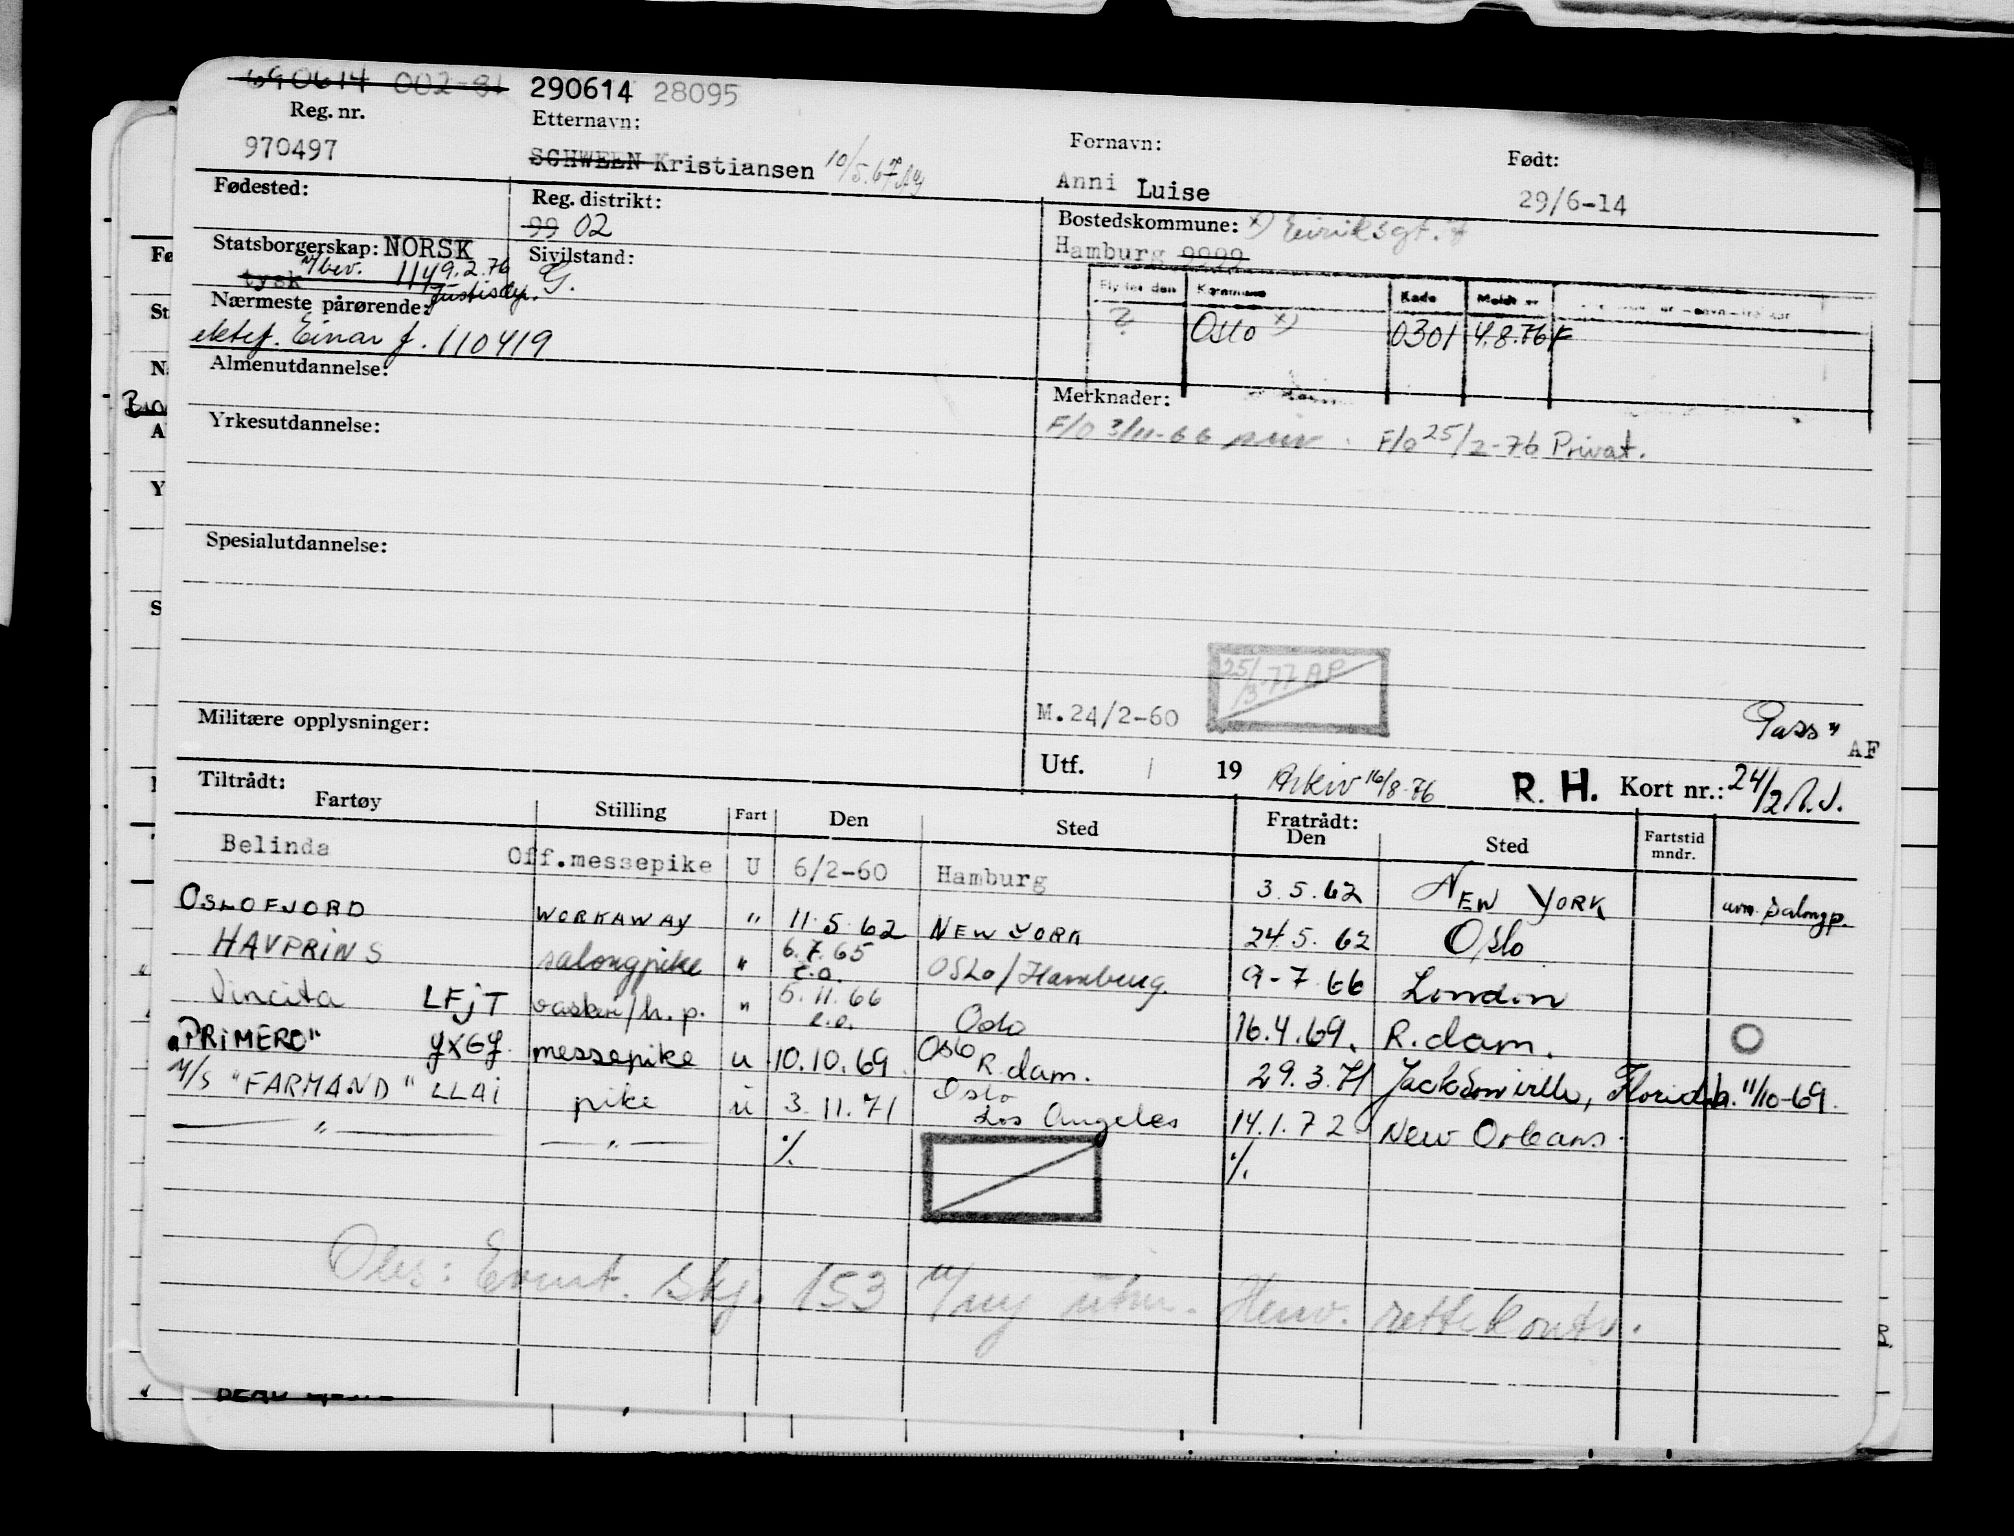 690614 002-81 290614 28095
Reg. nr. Etternavn: Fornavn: Født:
970497 SCHWEEN Kristiansen 10/5.67 Anni Luise 29/6-14
Fødested: Reg. distrikt: Bostedskommune: x) Eiriksgt. 7
99 02 Hamburg 9999
Statsborgerskap: NORSK Sivilstand:
tysk m/bev. 114 9.2.76 Justisdep. G.
Kommune Kode Meldt
Nærmeste pårørende:
? Oslo x) 0301 4.8.76 F
ektef. Einar f. 110419
Almenutdannelse: Merknader:
F/O 3/11-66 priv. F/o 25/2-76 Privat.
Yrkesutdannelse:
Spesialutdannelse:
25/3-77 AP
M.24/2-60 Pass"
Militære opplysninger: AF
Utf. 19 Arkiv 16/8-76 R. H. Kort nr.: 24/2
Tiltrådt: Fratrådt:
Fartøy Stilling Fart Den Sted Den Sted Fartstid mndr.
Belinda Off.messepike U 6/2-60 Hamburg 3.5.62 NEW YORK avm. salongp.
OSLOFJORD WORKAWAY " 11.5.62 NEW YORK 24.5.62 Oslo
HAVPRINS salongpike " 6.7.65 e.o. OSLO/Hamburg. 9-7.66 London
Vincita LFJT vaskeri/h.p. " 5.11.66 e.o. Oslo 16.4.69. R.dam. O
"PRIMERO" messepike u 10.10.69 Oslo R.dam. 29.3.71 Jacksonville, Florida. 11/10-69.
M/S "FARMAND" LLAI pike u 3.11.71 Oslo Los Angeles 14.1.72 New Orleans.
— " — — " — ·/. ·/.
Obs: Event. skj. 153 m/ny utm. Henv. rettekontr.